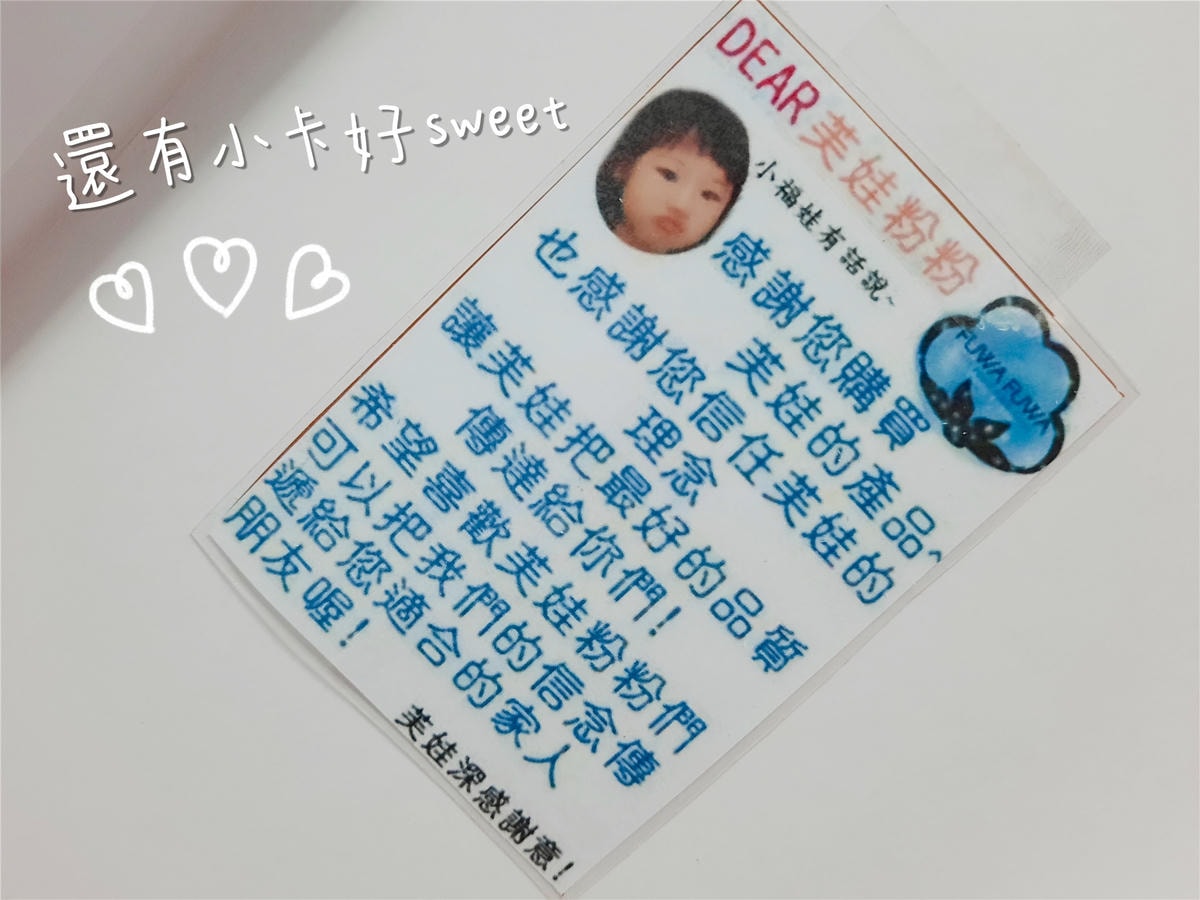 還有小卡好sweet
DEAR芙娃粉粉
小福娃有話說~
感謝您購買
芙娃的產品^
也感謝您信任芙娃的
理念
讓芙娃把最好的品質
傳達給你們!
希望喜歡芙娃粉粉們
可以把我們的信念傳
遞給您適合的家人
朋友喔!
芙娃深感謝意!
FUWA FUWA